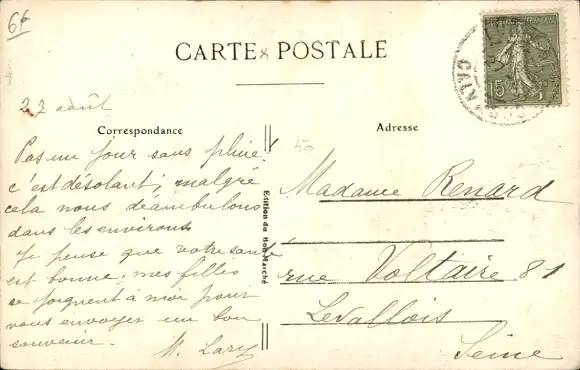 6f
CARTE POSTALE
15c
23 août
Correspondance
Adresse
Pas un jour sans pluie!
c'est désolant; malgré
cela nous déambulons
dans les environs
Je pense que votre santé
est bonne; mes filles
se joignent à moi pour
vous envoyer un bon
souvenir.
M. Lary
Edition du Bon Marché
50
Madame Renard
rue Voltaire 81
Levallois
Seine